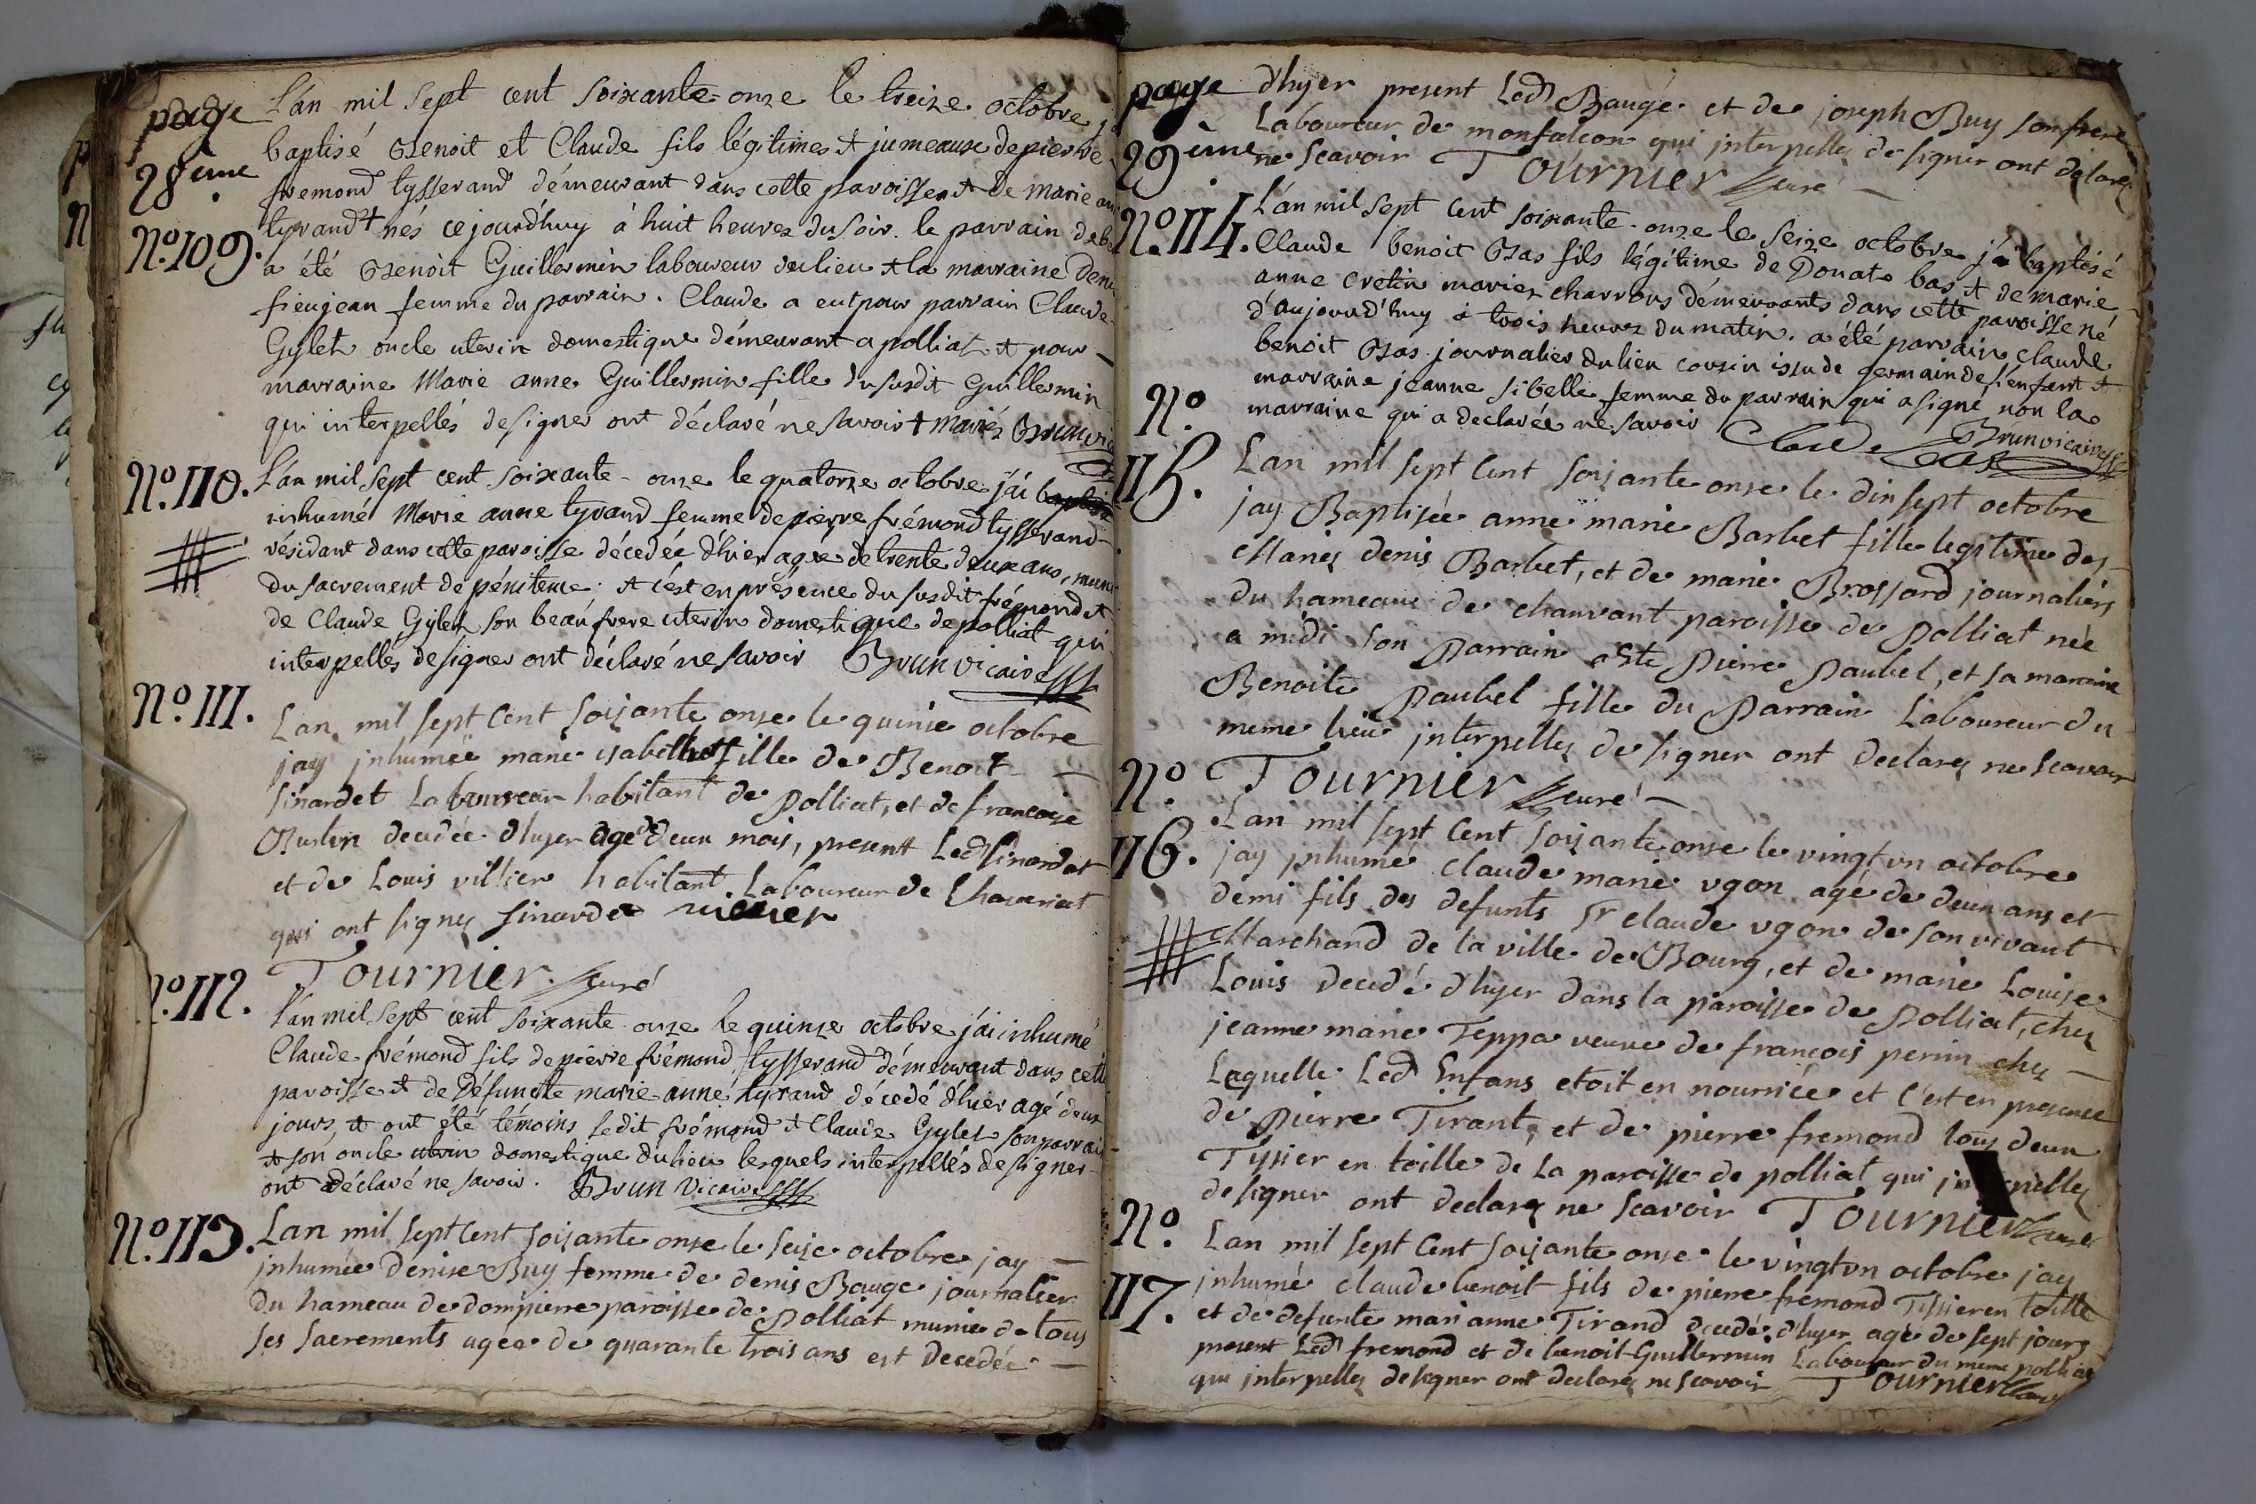 page
28ème
N.º 109.
L'an mil sept cent soixante-onze le treize octobre j'ai
baptisé Benoit et Claude fils légitimes et jumeaux de pierre
fremond tysserand démeurant dans cette paroisse et de marie anne
tyrand + nés ce jourd'huy à huit heures du soir. le parrain de benoit
a été Benoit Guillermin laboureur du lieu et la marraine
fieujean femme du parrain. Claude a eut pour parrain Claude
Gylet oncle uterin domestique démeurant a polliat et pour
marraine Marie anne Guillermin fille du susdit Guillermin
qui interpellés de signer ont déclaré ne savoir + mariés Brun vic
N.º 110.
L'an mil sept cent soixante-onze le quatorze octobre j'ai baptisé
inhumé Marie anne tyrand femme de pierre frémond tysserand
résidant dans cette paroisse décedée d'hier agée de trente deux ans, munie
du sacrement de pénitence. et c'est en présence du susdit frémond et
de Claude Gylet son beau frere uterin domestique de polliat qui
interpellés de signer ont déclaré ne savoir Brun vicaire
N.º 111.
Lan mil sept Cent soixante onze le quinze octobre
jay inhumée marie isabelle fille de Benoit
sinardet Laboureur habitant de Polliat, et de francoise
Burlin decedée d'huyer agé de deux mois, present Led sinardet
et de Louis villier habitant Laboureur de Chaveriat
qui ont signez sinardet villier
Tournier curé
N.º 112.
L'an mil sept cent soixante-onze le quinze octobre j'ai inhumé
Claude frémond fils de pierre frémond tysserand démeurant dans cette
paroisse et de Défuncte marie anne tyrand décedé d'hier agé deux
jours, et ont été témoins ledit frémond et Claude Gylet son parrain
et son oncle uterin domestique du lieu lesquels interpellés de signer
ont déclaré ne savoir. Brun Vicaire
N.º 113.
Lan mil sept Cent soixante onze le seize octobre jay
inhumée Denise Buy femme de denis Bauge journalier
du hameau de dompierre paroisse de Polliat munie de tous
ses sacrements agee de quarante trois ans est decedée
page
29ème
d'hyer present Led Baugé et de joseph Buy son frere
Laboureur de monfalcon qui interpellez de signer ont declarez
ne scavoir Tournier curé
N.º 114.
L'an mil sept cent soixante-onze le seize octobre j'ai baptisé
Claude benoit Bas fils légitime de Donat bas et de marie
anne cretin mariez charrons démeurants dans cette paroisse né
d'aujourd'huy à trois heures du matin. a été parrain claude
benoit Bas journalier du lieu cousin issu de germain de l'enfant et
marraine jeanne sibelle femme du parrain qui a signé non la
marraine qui a declarée ne savoir Claude Bas Brun vicaire
N.º
115.
Lan mil sept Cent soixante onze le dix sept octobre
jay Baptisée anne marie Barbet fille legitime des
Mariez denis Barbet, et de marie Brossard journaliers
du hameaux de chauvant paroisse de Polliat née
a midi son Parrain a ete Pierre Paubel, et sa marraine
Benoite Paubel fille du Parrain Laboureur du
meme lieu interpellez de signer ont declarez ne scavoir
Tournier curé
N.º
116.
Lan mil sept Cent soixante onze le vingt un octobre
jay inhumé claude marie ugon agé de deux ans et
demi fils des defunts Sr claude ugon de son vivant
Marchand de la ville de Bourg, et de marie Louise
Louis decedé d'hyer dans la paroisse de Polliat, chez
jeanne marie Teppa veuve de francois perrin chez
Laquelle Led Enfans etoit en nourrice et c'est en presence
de Pierre Tirant, et de pierre fremond tous deux
Tissier en toille de La paroisse de polliat qui interpellez
de signer ont declarez ne scavoir Tournier curé
N.º
117.
Lan mil sept Cent soixante onze le vingt un octobre jay
inhumé claude benoit fils de pierre fremond Tissier en toille
et de defunte marianne Tirand decedé d'hyer agé de sept jours
present Led fremond et de benoit Guillermin Laboureur du meme polliat
qui interpellez de signer ont declarez ne scavoir Tournier curé